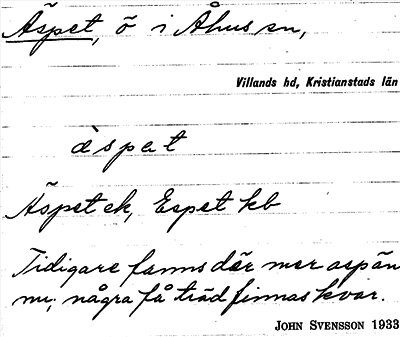 Äspet, ö i Åhus sn,
Villands hd, Kristianstads län
ä̀spət
Äspet ek, Espet kb
Tidigare fanns där mer asp än
nu; några få träd finnas kvar.
JOHN SVENSSON 1933